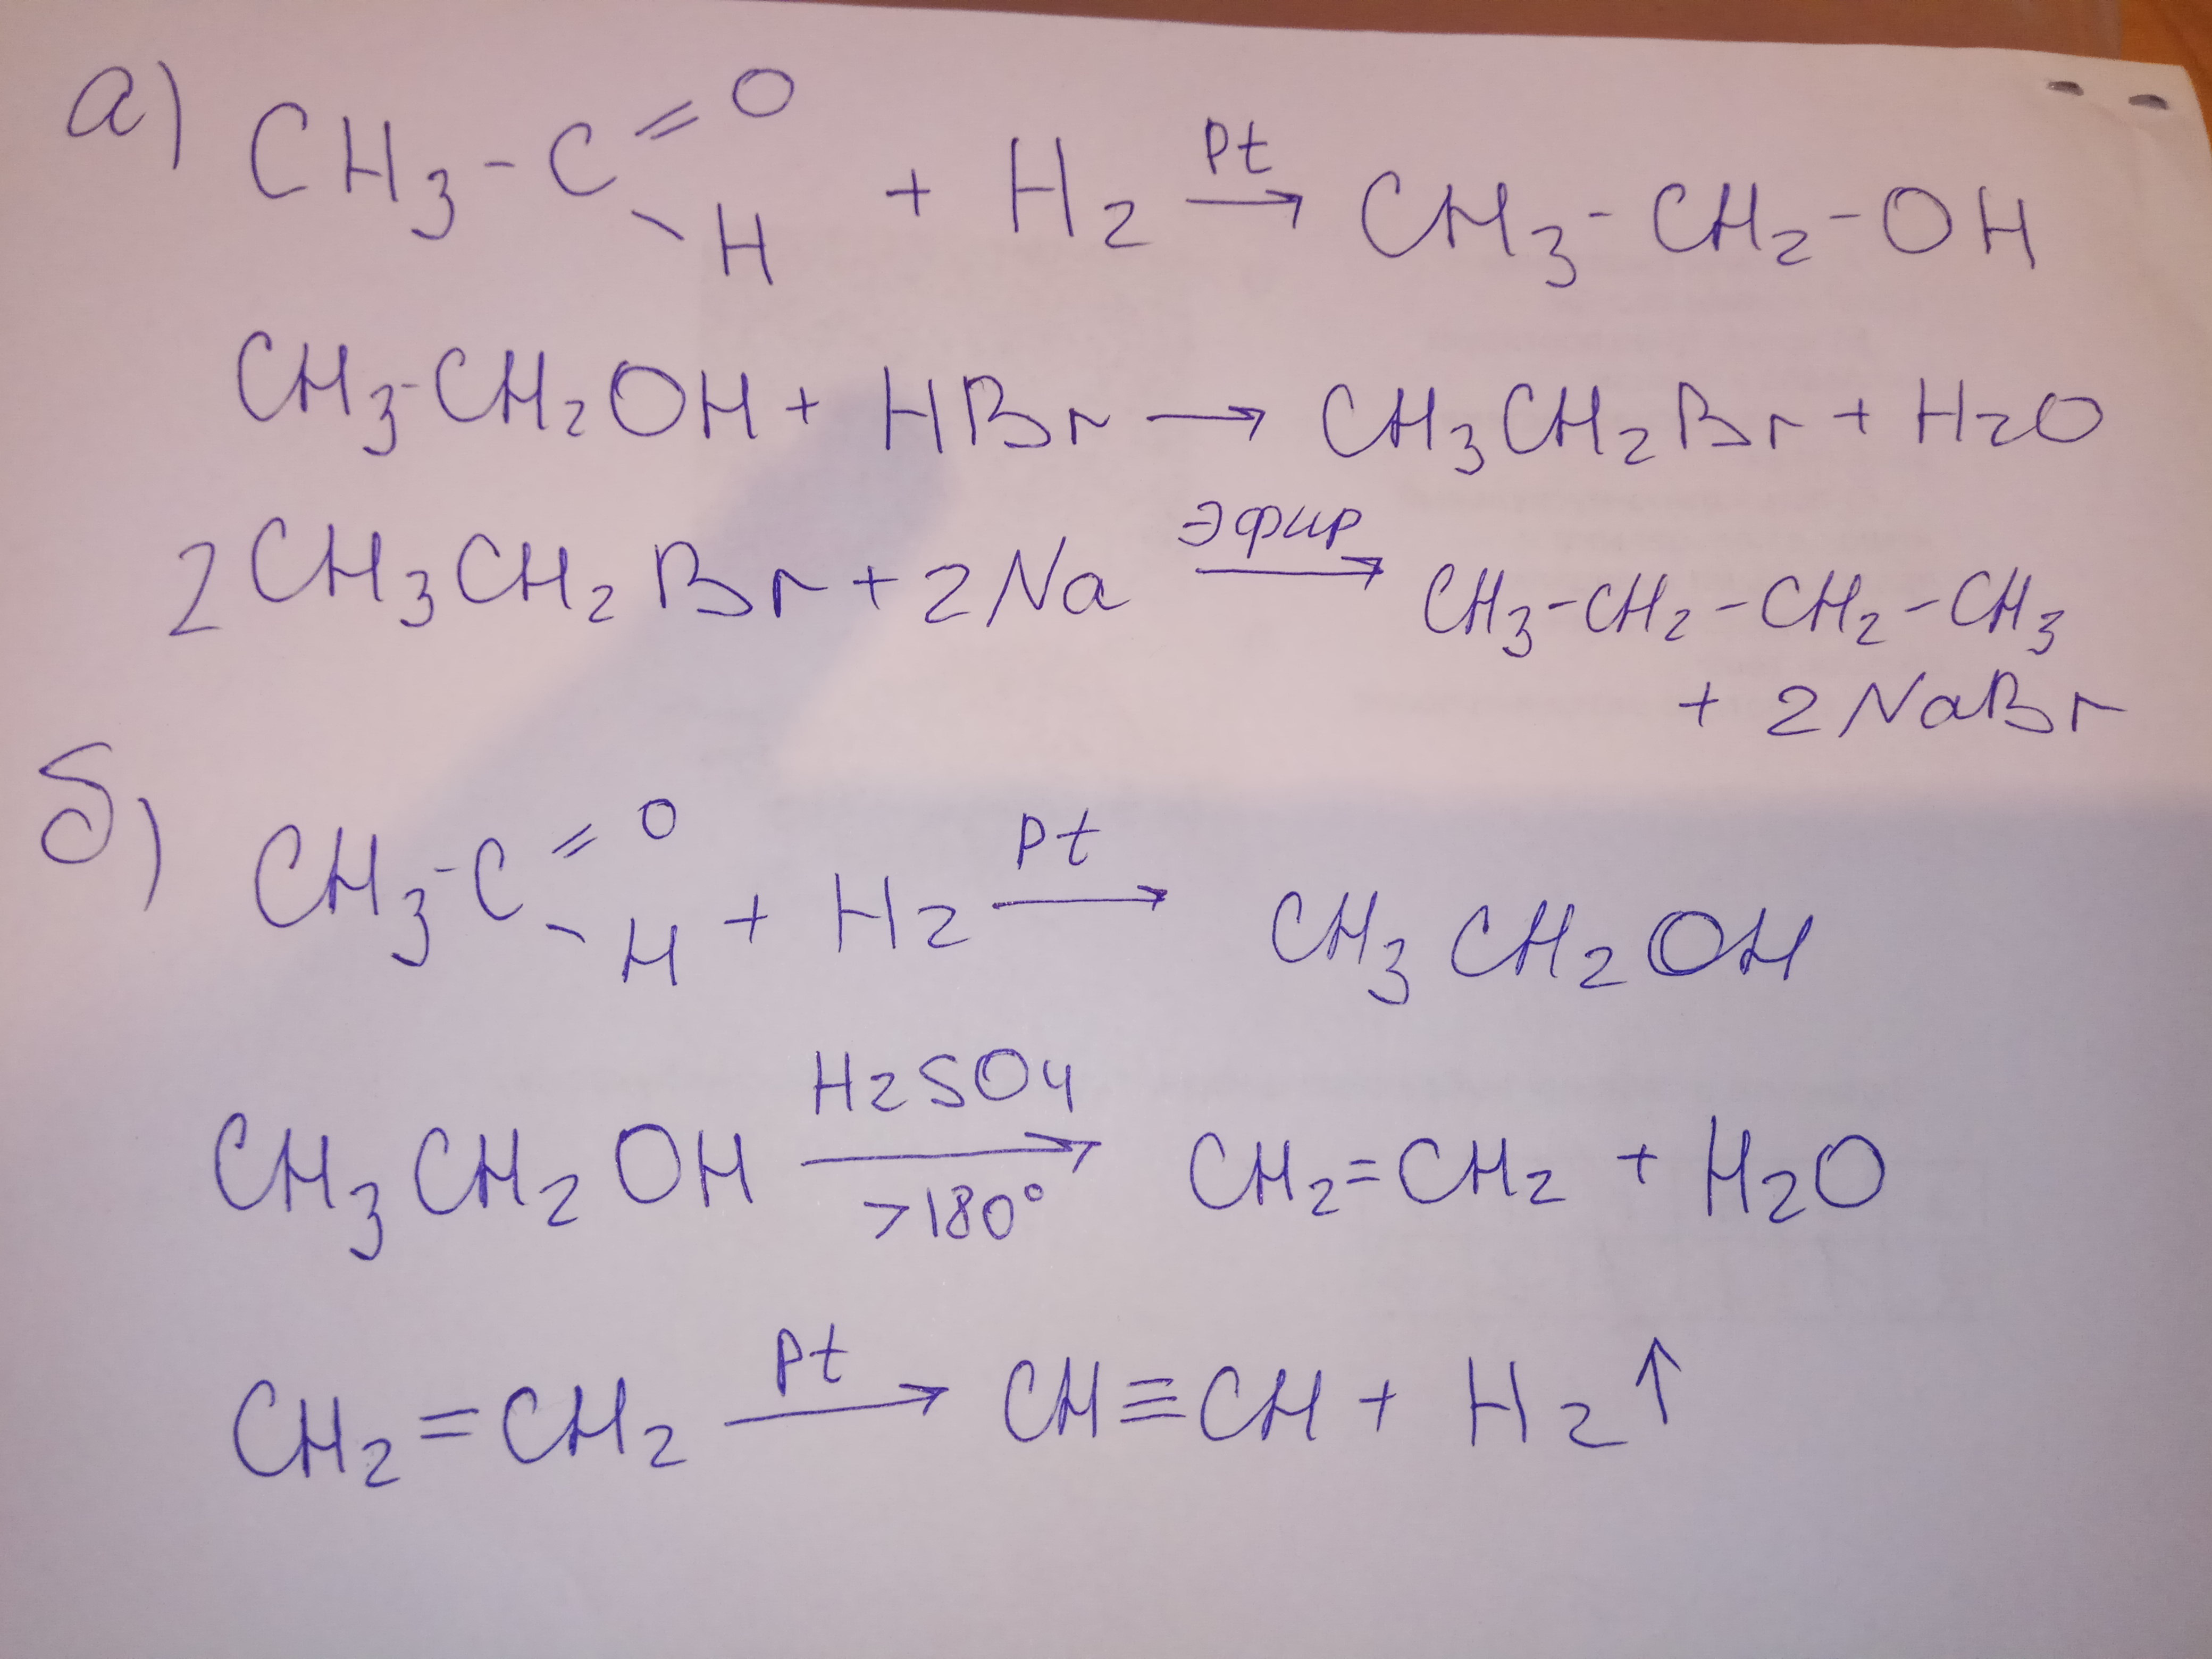 а) CH3-C=O-H + H2 Pt→ CH3-CH2-OH
CH3-CH2OH + HBr → CH3CH2Br + H2O
2CH3CH2Br + 2Na эфир→ CH3-CH2-CH2-CH3
+ 2NaBr
б) CH3-C=O-H + H2 Pt→ CH3CH2OH
CH3CH2OH H2SO4→ >180° CH2=CH2 + H2O
CH2=CH2 Pt→ CH≡CH + H2↑